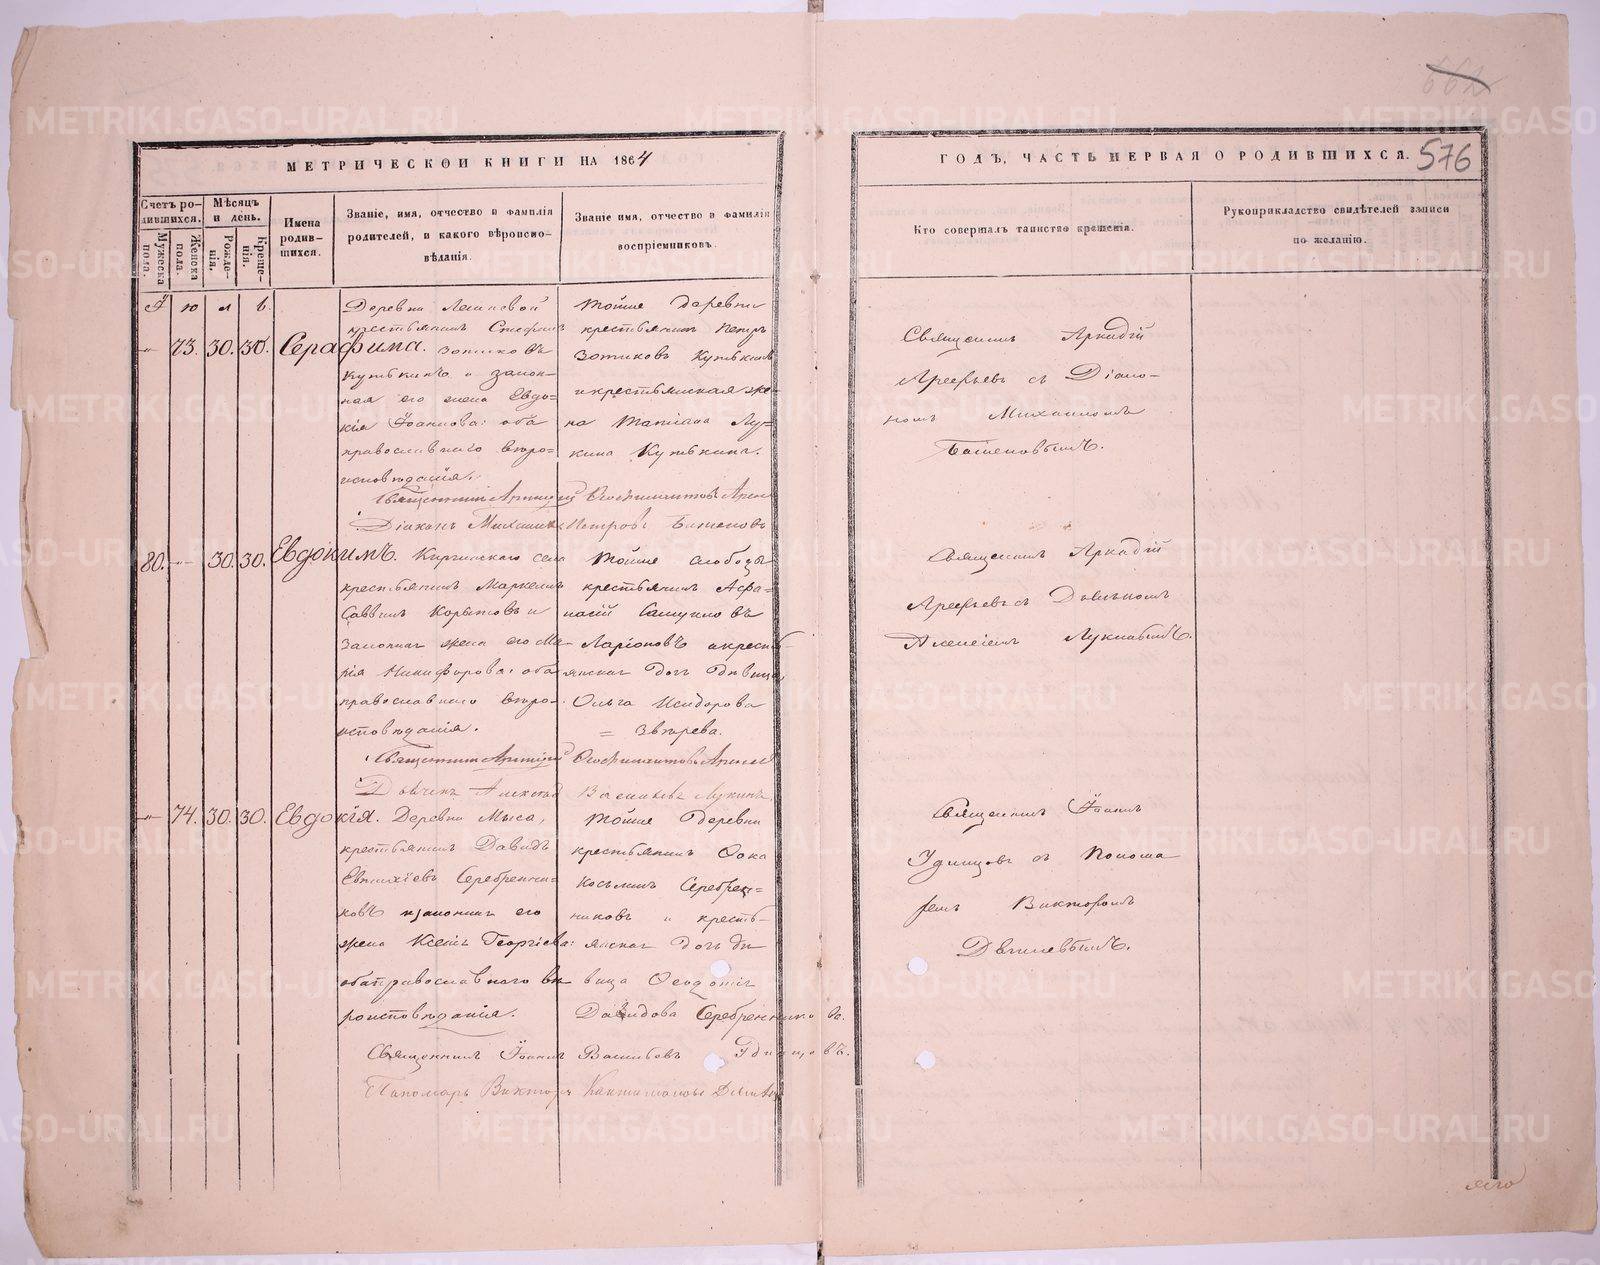 662
МЕТРИЧЕСКОЙ КНИГИ НА 1864
ГОДЪ, ЧАСТЬ ПЕРВАЯ О РОДИВШИХСЯ.
576
Счетъ ро-
дившихся.
Мужеска
пола.
Женска
пола.
Мѣсяцъ
и день.
Рожде-
нія.
Креще-
нія.
Имена
родив-
шихся.
Званіе, имя, отчество и фамилія
родителей, и какого вѣроиспо-
вѣданія.
Званіе имя, отчество и фамилія
воспріемниковъ.
Кто совершалъ таинство крещенія.
Рукоприкладство свидѣтелей записи
по желанію.
І ю л ь
73. 30. 30. Серафима.
Деревни
крестьянинъ
Зотиковъ
Кутькинъ и закон-
ная его жена Евдо=
кія Іоаннова: оба
православнаго вѣро=
исповѣданія.
Тойже деревни
крестьянинъ Петръ
Зотиковъ Кутькинъ
и крестьянская же-
на Татіана Лу=
кина Кутькина.
Священникъ Аркадій
Діаконъ Михаилъ Петровъ
Священникъ Аркадій
Арефьевъ съ Діако-
номъ Михаиломъ
80. 30. 30. Евдокимъ.
Киргинскаго села
крестьянинъ Маркеллъ
Саввинъ и
законная жена его Ма-
рія Никифорова: оба
православнаго вѣро-
исповѣданія.
Тойже слободы
крестьянинъ Афа-
насій
Ларіоновъ и кресть-
янская дочь дѣвица
Ольга Исидорова
= Звѣрева.
Священникъ Аркадій
Священникъ Аркадій
Арефьевъ съ Дьячкомъ
Алексіемъ
74. 30. 30. Евдокія.
Деревни Мыса,
крестьянинъ Давидъ
Евтихіевъ Серебренни=
ковъ и законная его
жена Ксенія Георгіева:
оба православнаго вѣ
роисповѣданія.
Тойже деревни
крестьянинъ Фока
Косьминъ Серебрен=
никовъ и кресть-
янская дочь дѣ
вица Феодотія
Давидова Серебренникова.
Священникъ Іоаннъ Удинцовъ.
Пономарь Викторъ
Священникъ Іоаннъ
Удинцовъ съ Понома
ремъ Викторомъ
METRIKI.GASO-URAL.RU